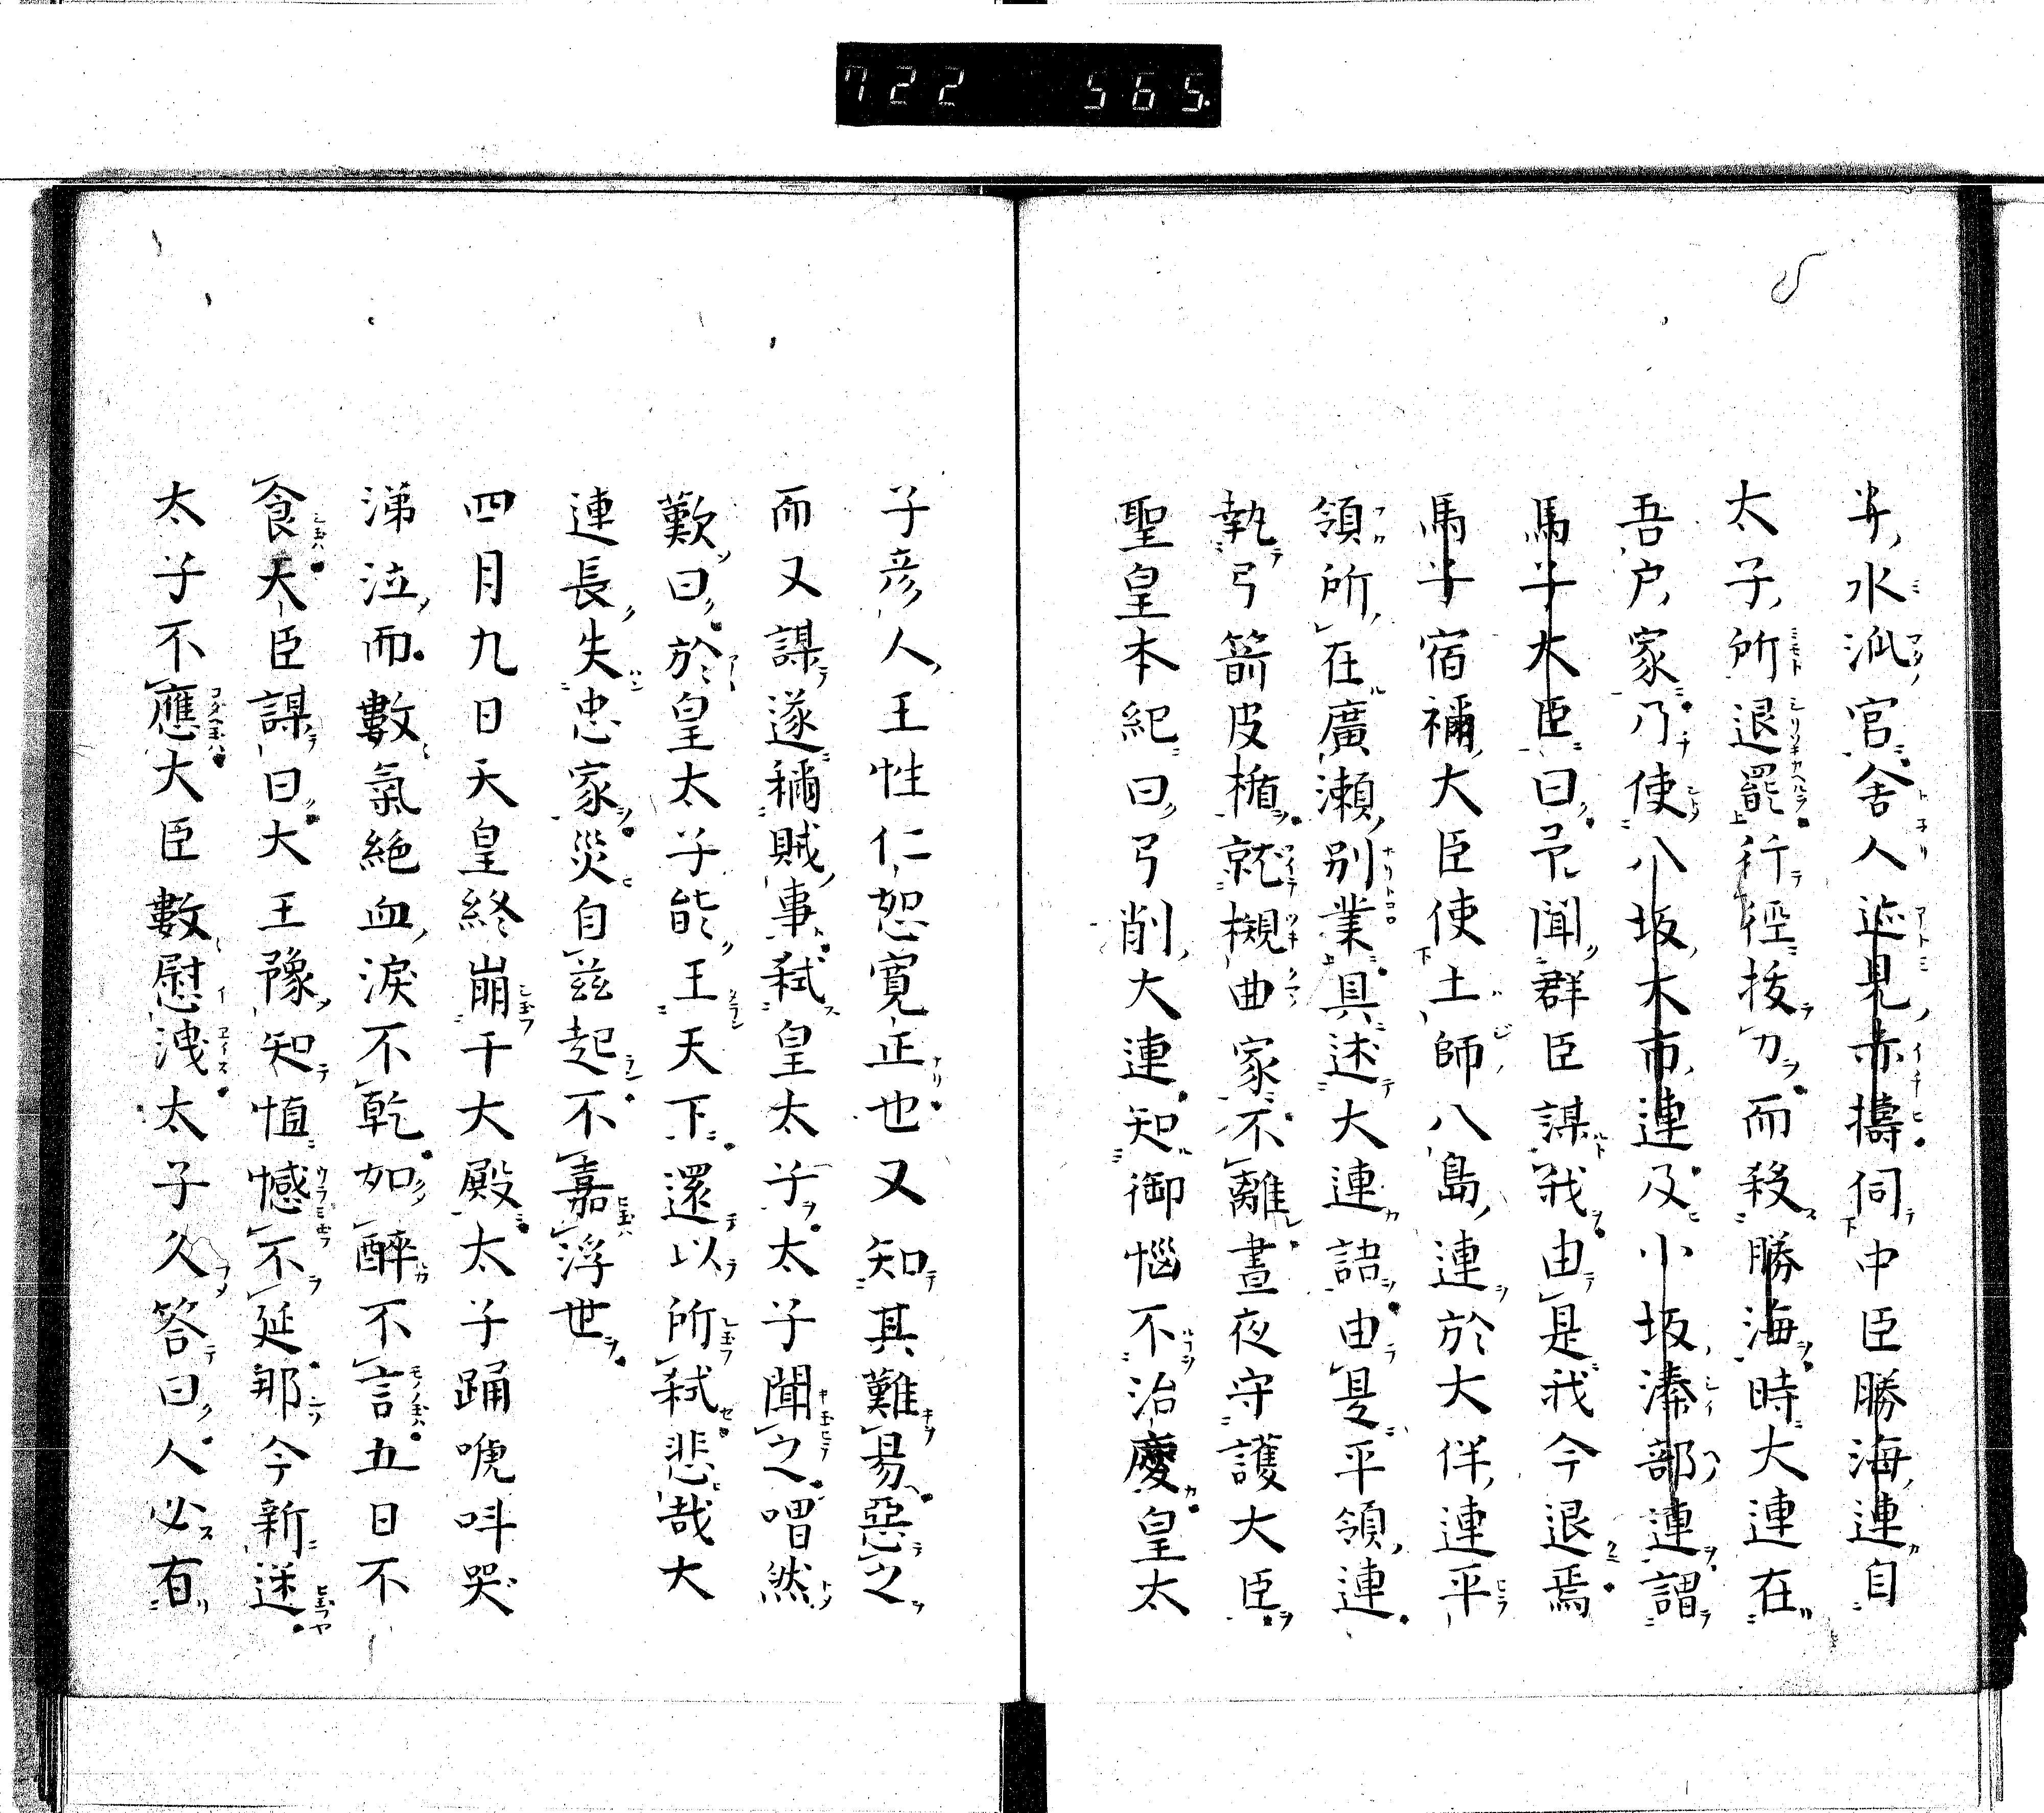 722 565
牟水泒宮舍人迹見赤檮伺中臣勝海連自
太子所退罷行徑拔刀而殺勝海時大連在
吾戸家乃使八坂大市連及小坂漆部連謂
馬子大臣曰予聞群臣謀我由是我今退焉
馬子宿禰大臣使土師八島連於大伴連平
領所在廣瀬別業具述大連語由是平領連
執弓箭皮楯就槻曲家不離晝夜守護大臣
聖皇本紀曰弓削大連知御惱不治慶皇太
子彦人王性仁恕寛正也又知其難易惡之
而又謀遂稱賊事弑皇太子太子聞之喟然
歎曰於皇太子能王天下還以所弑悲哉大
連長失忠家災自茲起不嘉浮世
四月九日天皇終崩于大殿太子踊唬呌哭
涕泣而數氣絶血淚不乾如醉不言五日不
食大臣謀曰大王豫知恒憾不延那今新迷
太子不應大臣數慰洩太子久答曰人必有